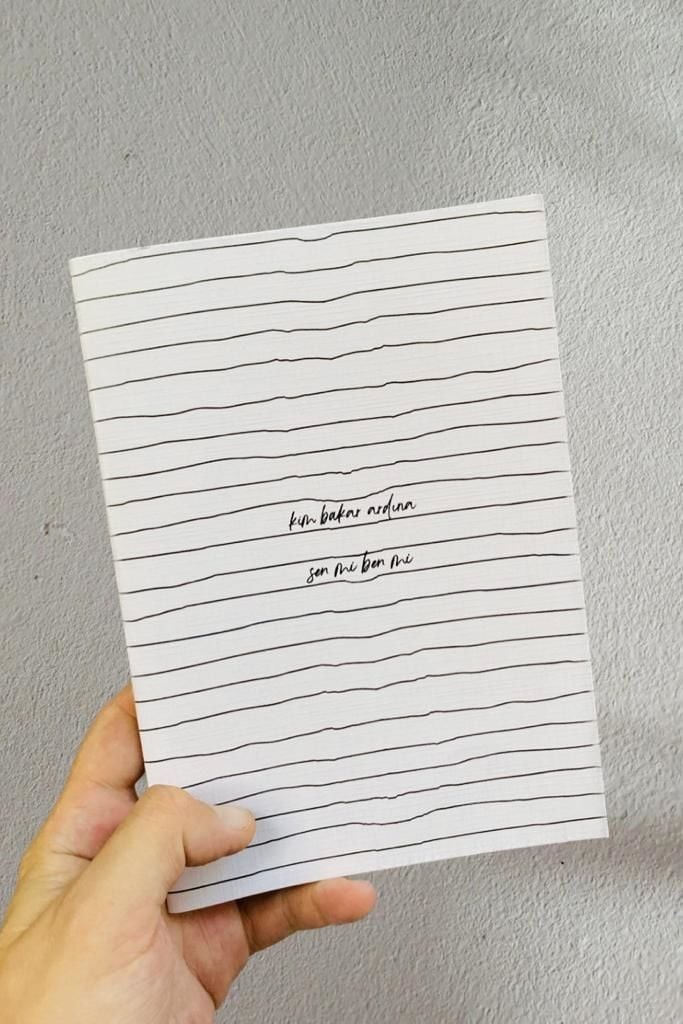 kim bakar ardına
sen mi ben mi